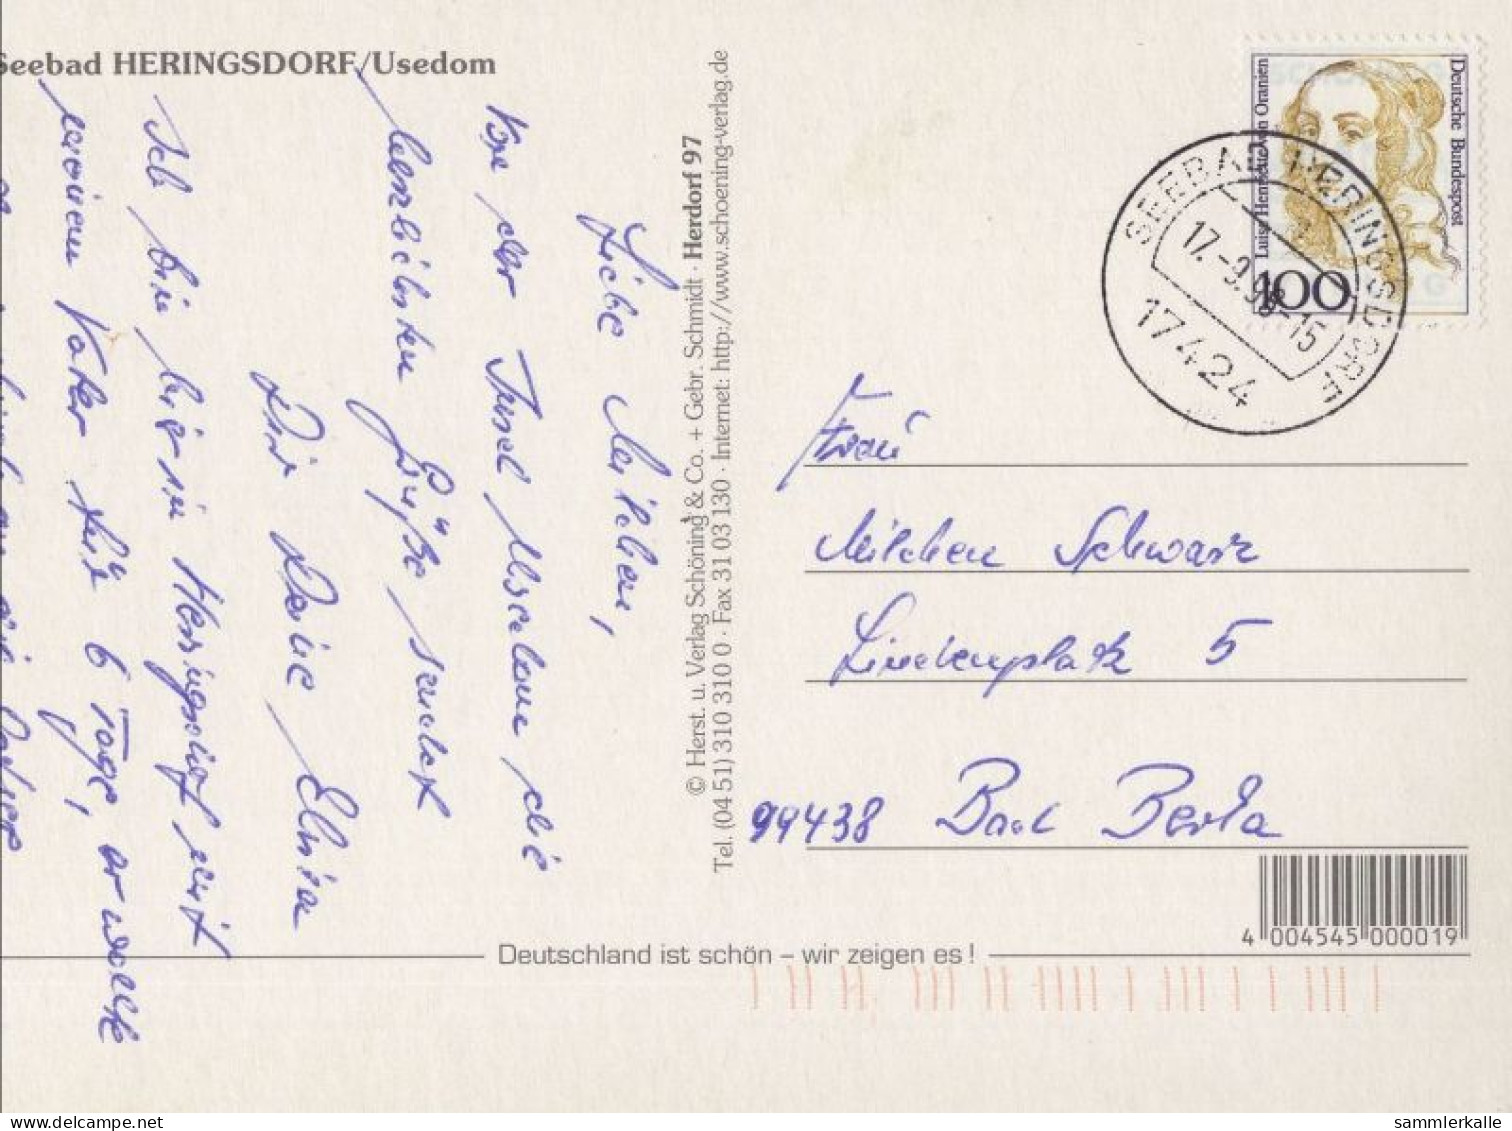 Seebad HERINGSDORF/Usedom
Liebe Milchen,
Von der Insel Usedom die
herzlichsten Grüße sendet
Dir Deine Elisa
Ich bin hier in Heringsdorf mit
meinem Vater für 6 Tage, er wollte
© Herst. u. Verlag Schöning & Co. + Gebr. Schmidt · Herdorf 97
Tel. (04 51) 310 310 0 · Fax 31 03 130 · Internet: http://www.schoening-verlag.de
Deutsche Bundespost
Luise Henriette von Oranien
100
SEEBAD HERINGSDORF
17.-9.98-15
17424
Frau
Milchen Schwarz
Lindenplatz 5
99438 Bad Berka
4 004545 000019
Deutschland ist schön – wir zeigen es!
delcampe.net
sammlerkalle